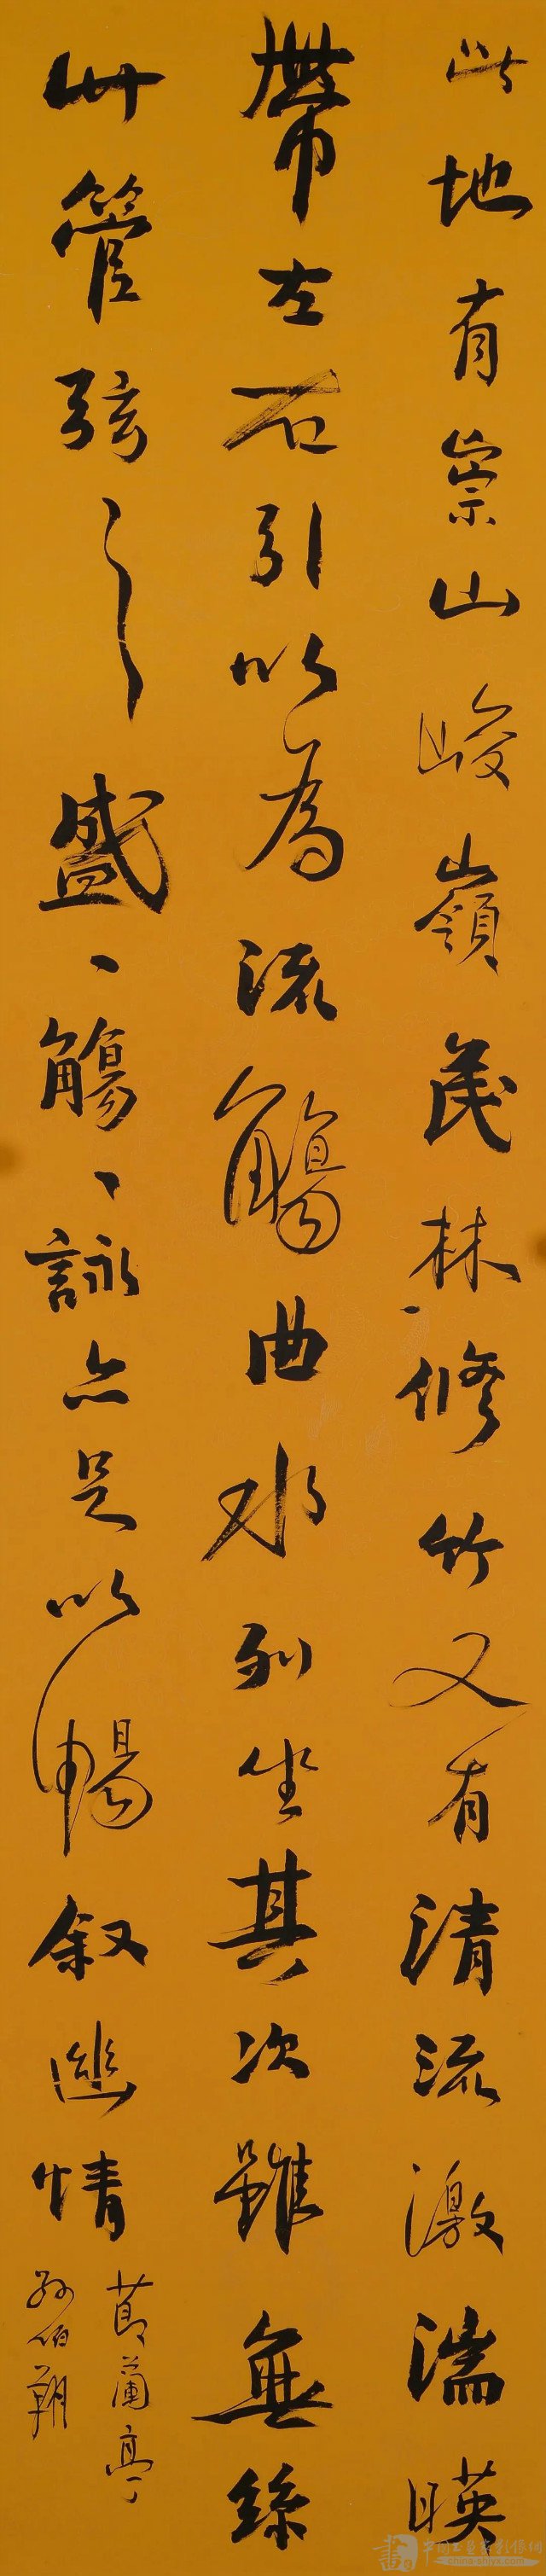 此地有崇山峻嶺茂林修竹又有清流激湍暎
帶左右引以為流觴曲水列坐其次雖無絲
竹管弦之盛一觴一詠亦足以暢叙幽情
節蘭亭
孫伯翔